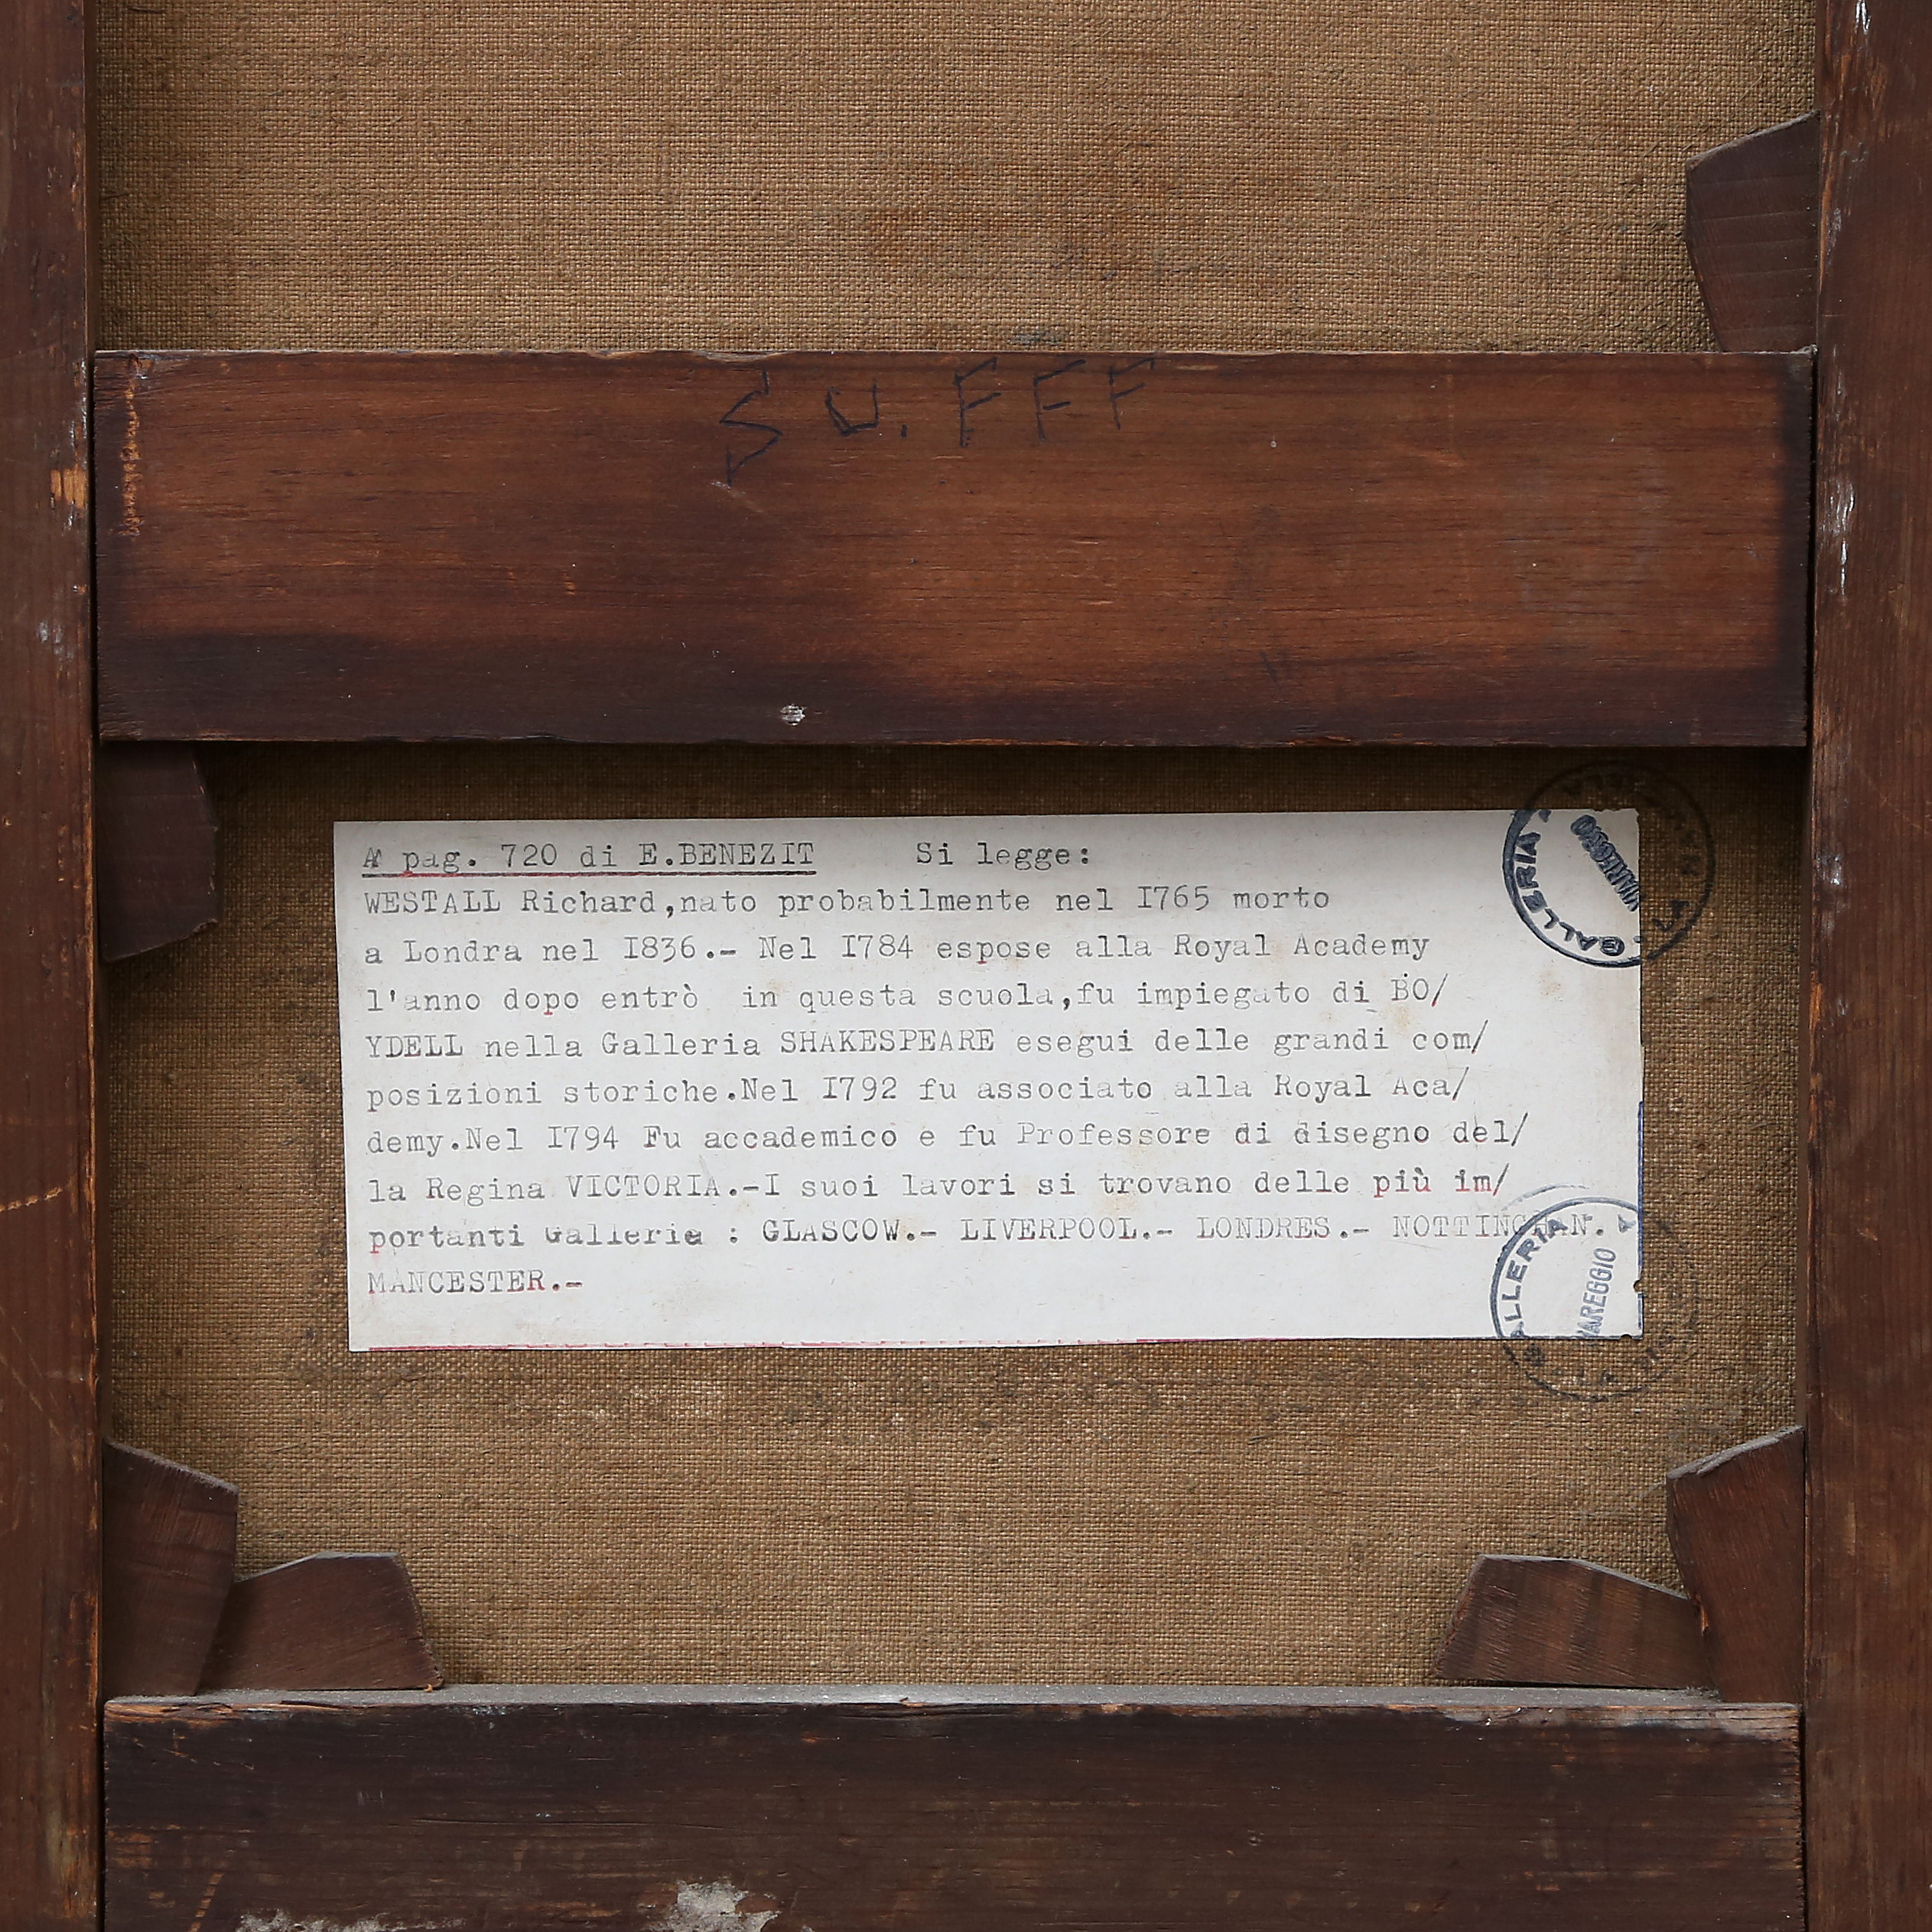 SU. FFF
A pag. 720 di E.BENEZIT Si legge:
WESTALL Richard,nato probabilmente nel I765 morto
a Londra nel I836.- Nel I784 espose alla Royal Academy
l'anno dopo entrò in questa scuola,fu impiegato di BO/
YDELL nella Galleria SHAKESPEARE esegui delle grandi com/
posizioni storiche.Nel I792 fu associato alla Royal Aca/
demy.Nel I794 Fu accademico e fu Professore di disegno del/
la Regina VICTORIA.-I suoi lavori si trovano delle più im/
portanti Gallerie : GLASCOW.- LIVERPOOL.- LONDRES.- NOTTINGHAN.
MANCESTER.-
GALLERIA
VIAREGGIO
GALLERIA
VIAREGGIO